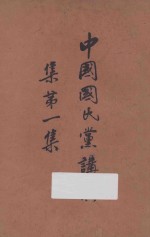 中國國民黨講
集第一集